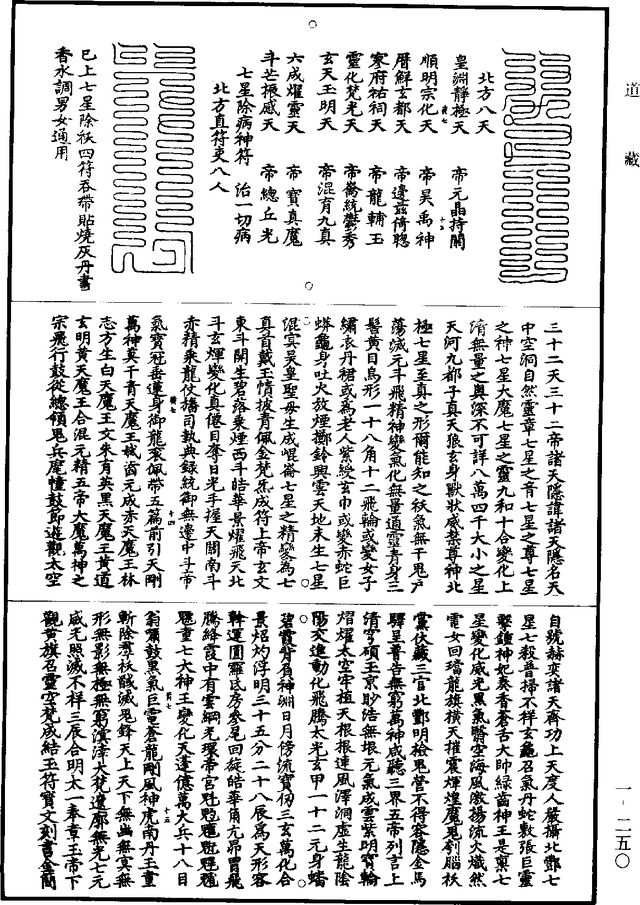 道藏
北方八天
皇淵靜極天　帝元晶持闕
順明宗化天　帝昊禹神
曆鮮玄都天　帝邊茲倚聰
寥府祐祠天　帝龍輔玉
靈化梵光天　帝喬統鬱秀
玄天玉明天　帝混育九真
六成燿靈天　帝寶真魔
斗芒振威天　帝總丘光
七星除病神符　治一切病
北方直符吏八人
已上七星除祅四符吞帶貼燒灰丹書
香水調男女通用
三十二天三十二帝諸天隱諱諸天隱名天
中空洞自然靈章七星之音七星之尊七星
之神七星大魔七星之靈九和十合變化上
清無量之奧深不可詳八萬四千大小之星
天河九都子真天狼玄身獸狀威禁尊神北
極七星至真之形爾能知之祅氣無干鬼尸
蕩滅元斗飛精神變氣化無量通靈青身三
髻黃目鳥形一十八角十二飛輪或變女子
繡衣丹裙或為老人紫綬玄巾或變赤蛇巨
蟒龜身吐火放煙擲鈴興雲天地未生七星
混宾昊皇聖母生成崐崙七星之精變為七
真首戴玉幘披青佩金梵炁成符上帝玄文
東斗開生碧落乘煙西斗皓華景燿飛天北
斗玄煇變化真僊目奪日光手握天關南斗
赤精乘龍仗旛司執典錄統御無邊中斗帝
氣寶冠垂蓮身御龍衮佩帶五篇前引天剛
萬神莫干青天魔王城齒元成赤天魔王林
志方生白天魔王文朱育英黑天魔王黃道
玄明黃天魔王合混元精五帝大魔萬神之
宗飛行鼓從總領鬼兵麾幢鼓節遊觀太空
自號赫奕諸天齊功上天度人嚴攝北酆七
星七殺普掃不祥玄龜召氣丹蛇敷張巨靈
擊鍾神妃奏香蒼舌大帥綠齒神王是稟七
星變化威光黑氣翳空海風激揚流火熾然
電女回璫龍旗橫天摧震煇煌魔鬼剳腦祅
黨伏藏三官北酆明檢鬼營不得容隱金馬
驛呈普告無窮萬神咸聽三界五帝列言上
清穹碩玉京眇浩無垠元氣成雲紫明寶輪
熠燿太空牢植天根根連風澤洞虛生龍陰
陽交進動化飛騰太光玄甲一十二元身蟠
碧霞背負神淵日月傍流寶仞三玄萬化合
景炤灼浮明三十五分二十八辰為天形容
斡運圓羅氐房參尾回旋皓華角亢昴胃飛
騰絡霞中有雲綱光環帝宮魁䰢䰫䰟魓䰪
䰱重七大神王變化天蓬億萬大兵十八日
翁翳鼓黑氣巨電蒼龍剛風神虎南丹玉童
斬除群祅馘滅鬼鋒天上天下無幽無冥無
形無影無極無窮濱涬大梵遼廓無光七元
威光照滅不祥三辰合明太一奉章玉帝下
觀黃旗召靈空梵成結玉符寶文刻書金闕
一·二五〇